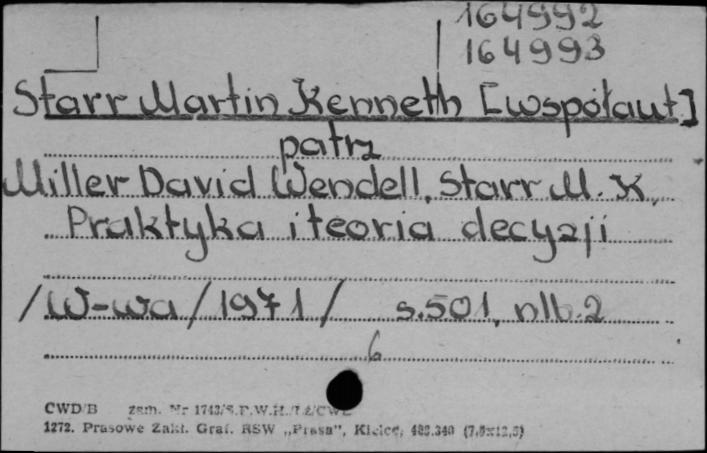 164992
164993
Starr Martin Kenneth [współaut]
patrz
Miller David Wendell, Starr M. K.
Praktyka i teoria decyzji
/W-wa/1971/ s.501, nlb.2
6
CWD/B zam. Nr 1743/S.P.W.H.
1272. Prasowe Zakł. Graf. RSW „Prasa”, Kielce, 482.340 (7,5x12,5)